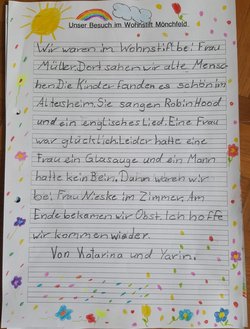 Unser Besuch im Wohnstift Mönchfeld
Wir waren im Wohnstift bei Frau
Müller. Dort sahen wir alte Mensc
hen. Die Kinder fanden es schön im
Altesheim. Sie sangen Robin Hood
und ein englisches Lied. Eine Frau
war glücklich. Leider hatte eine
Frau ein Glasauge und ein Mann
hatte kein Bein. Dann waren wir
bei Frau Nieske im Zimmer. Am
Ende bekamen wir Obst. Ich hoffe
wir kommen wieder.
Von Katarina und Yarin.